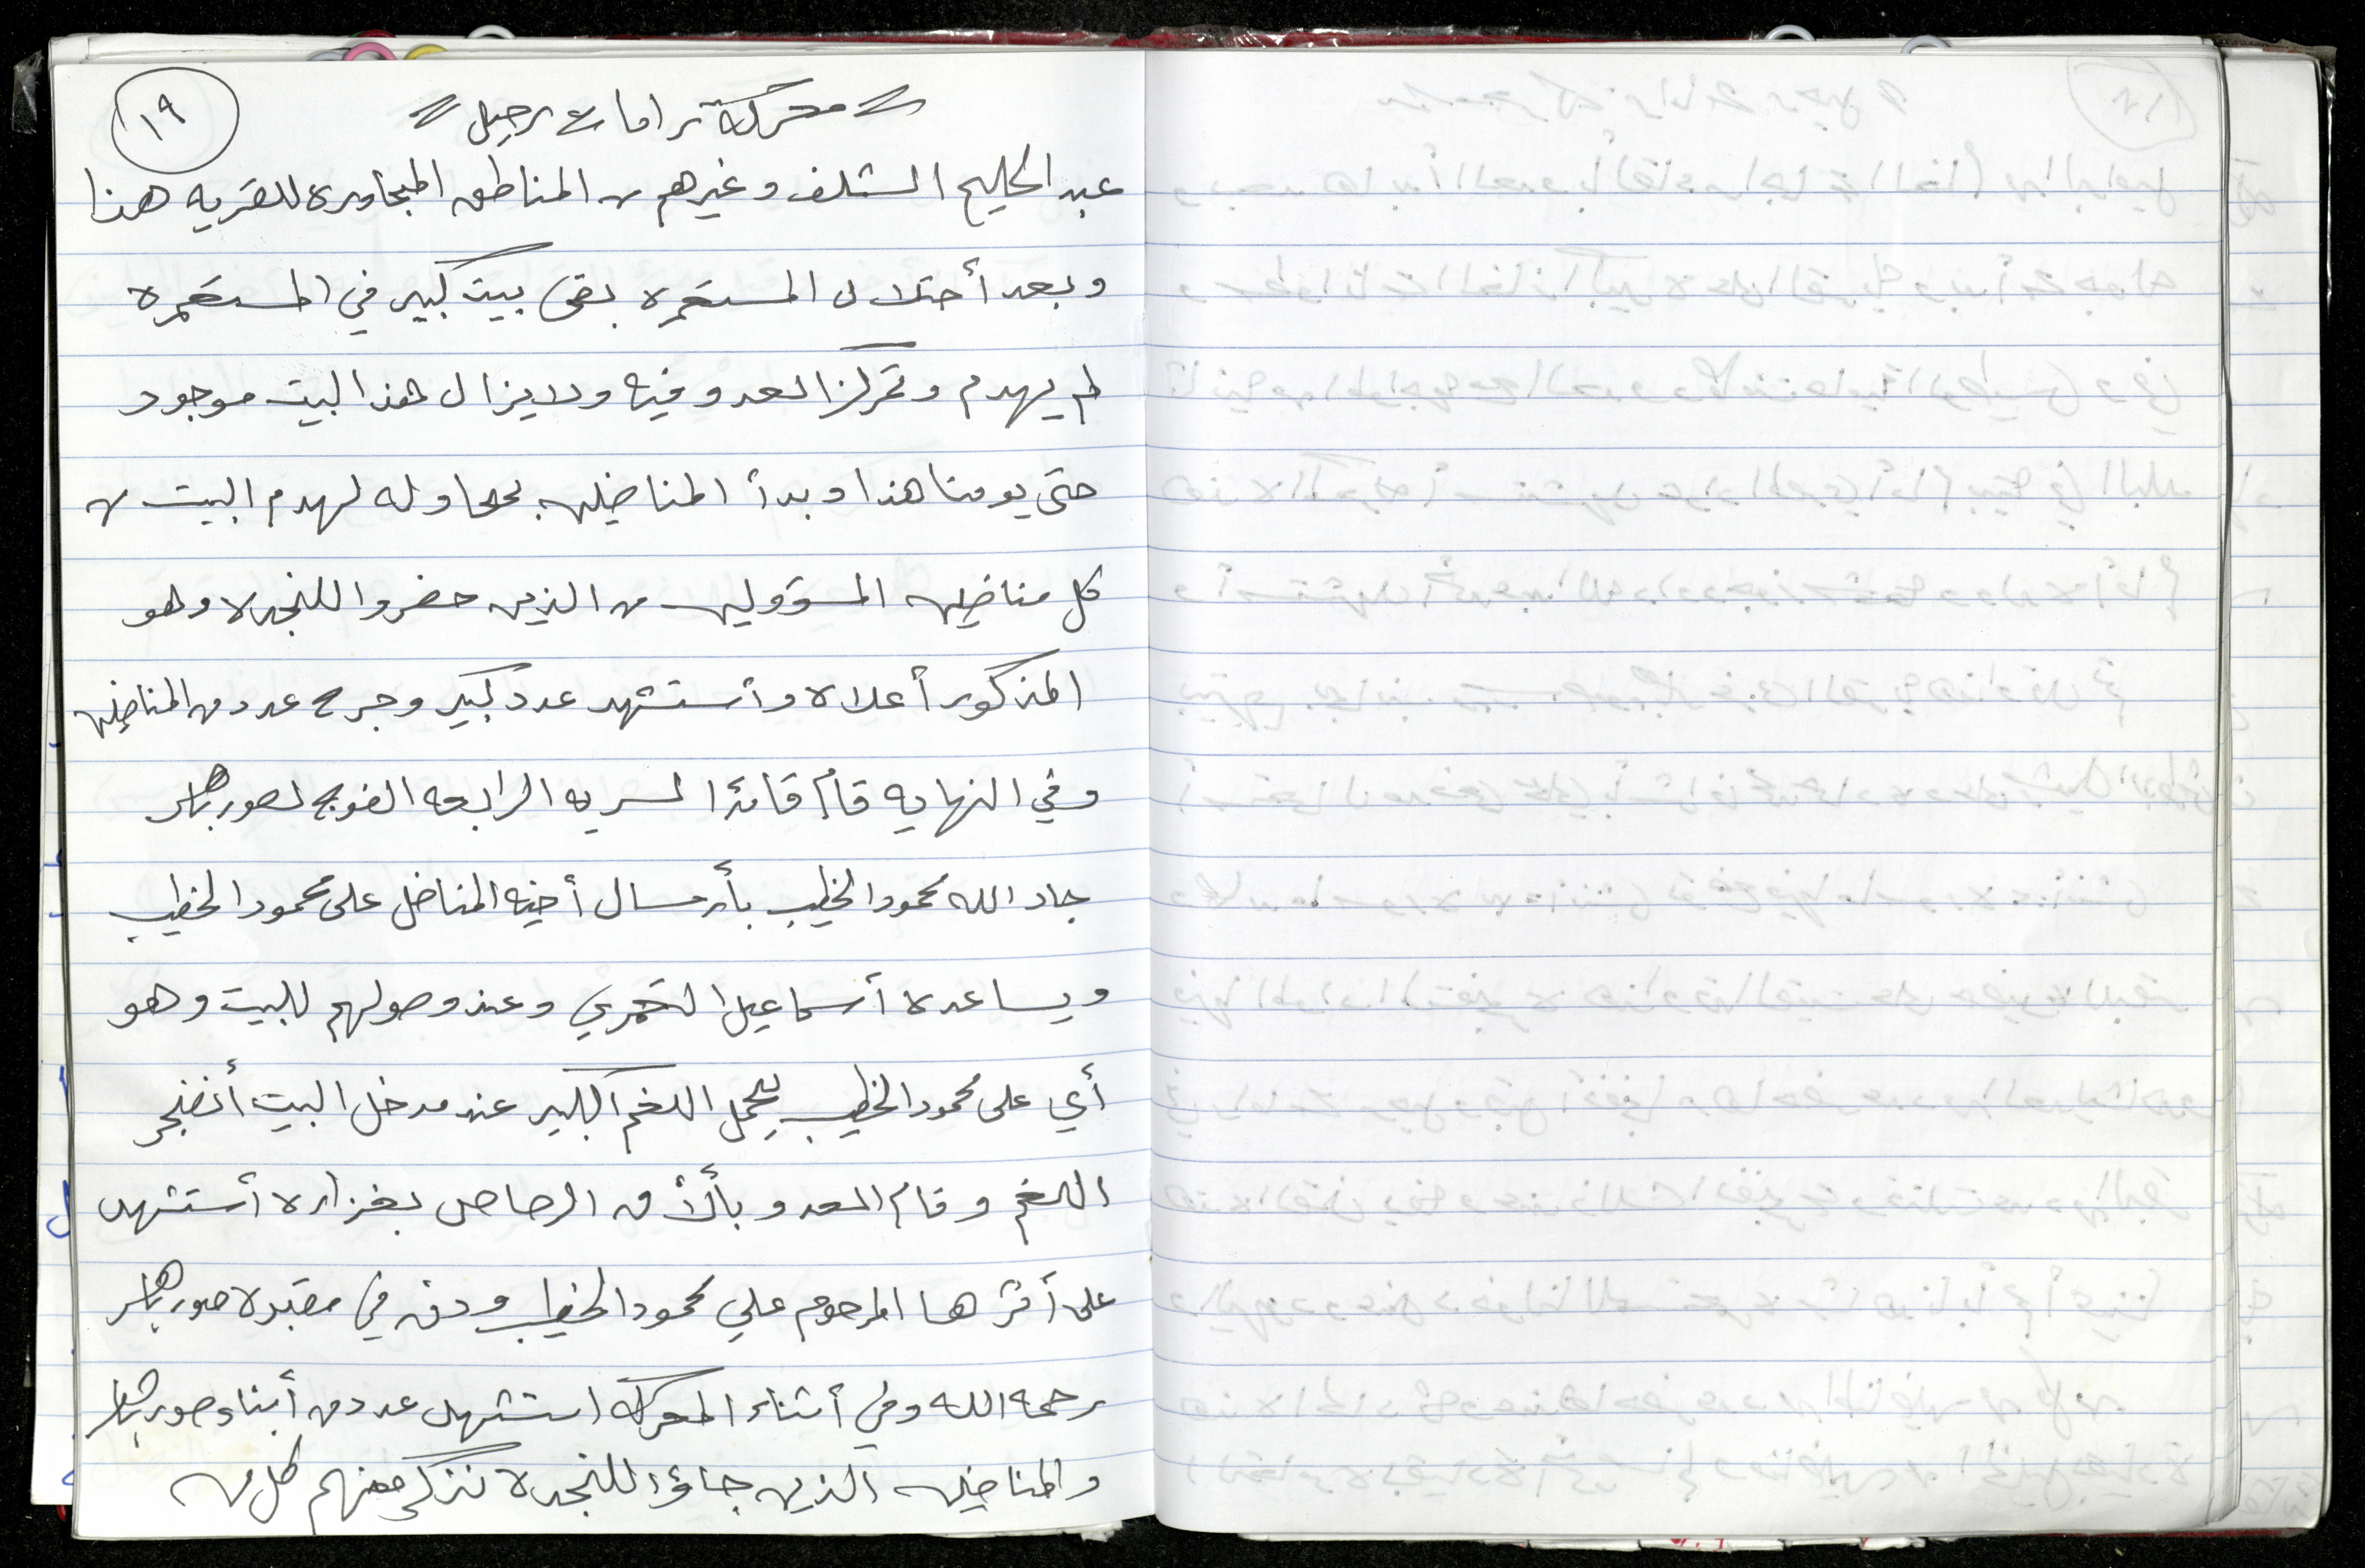 ١٩
= معركة رامات رحيل =
عبد الحليم الشلف وغيرهم من المناطق المجاوره للقريه هذا
وبعد أحتلال المستعمره بقى بيت كبير في المستعمره
لم يهدم وتمركز العدو فيه ولا يزال هذا البيت موجود
حتى يومنا هذا وبدأ المناضلين بمحاوله لهدم البيت من
كل مناضلين المسؤولين من الذين حضروا للنجده وهو
المذكور أعلاه وأستشهد عدد كبير وجرح عدد من المناضلين
وفي النهايه قام قائد السريه الرابعه الفوج لصور باهر
جاد الله محمود الخطيب بأرسال أخيه المناضل على محمود الخطيب
ويساعده أسماعيل العمري وعند وصولهم للبيت وهو
أي على محمود الخطيب يحمل اللغم الكبير عند مدخل البيت أنفجر
اللغم وقام العدو بألأق الرصاص بغزاره أستشهد
على أثرها المرحوم علي محمود الخطيب ودفن في مقبرة صور باهر
رحمه الله وفي أثناء المعركه استشهد عدد من أبناء صور باهر
والمناضلين الذين جاؤا للنجده نذكر منهم كل من